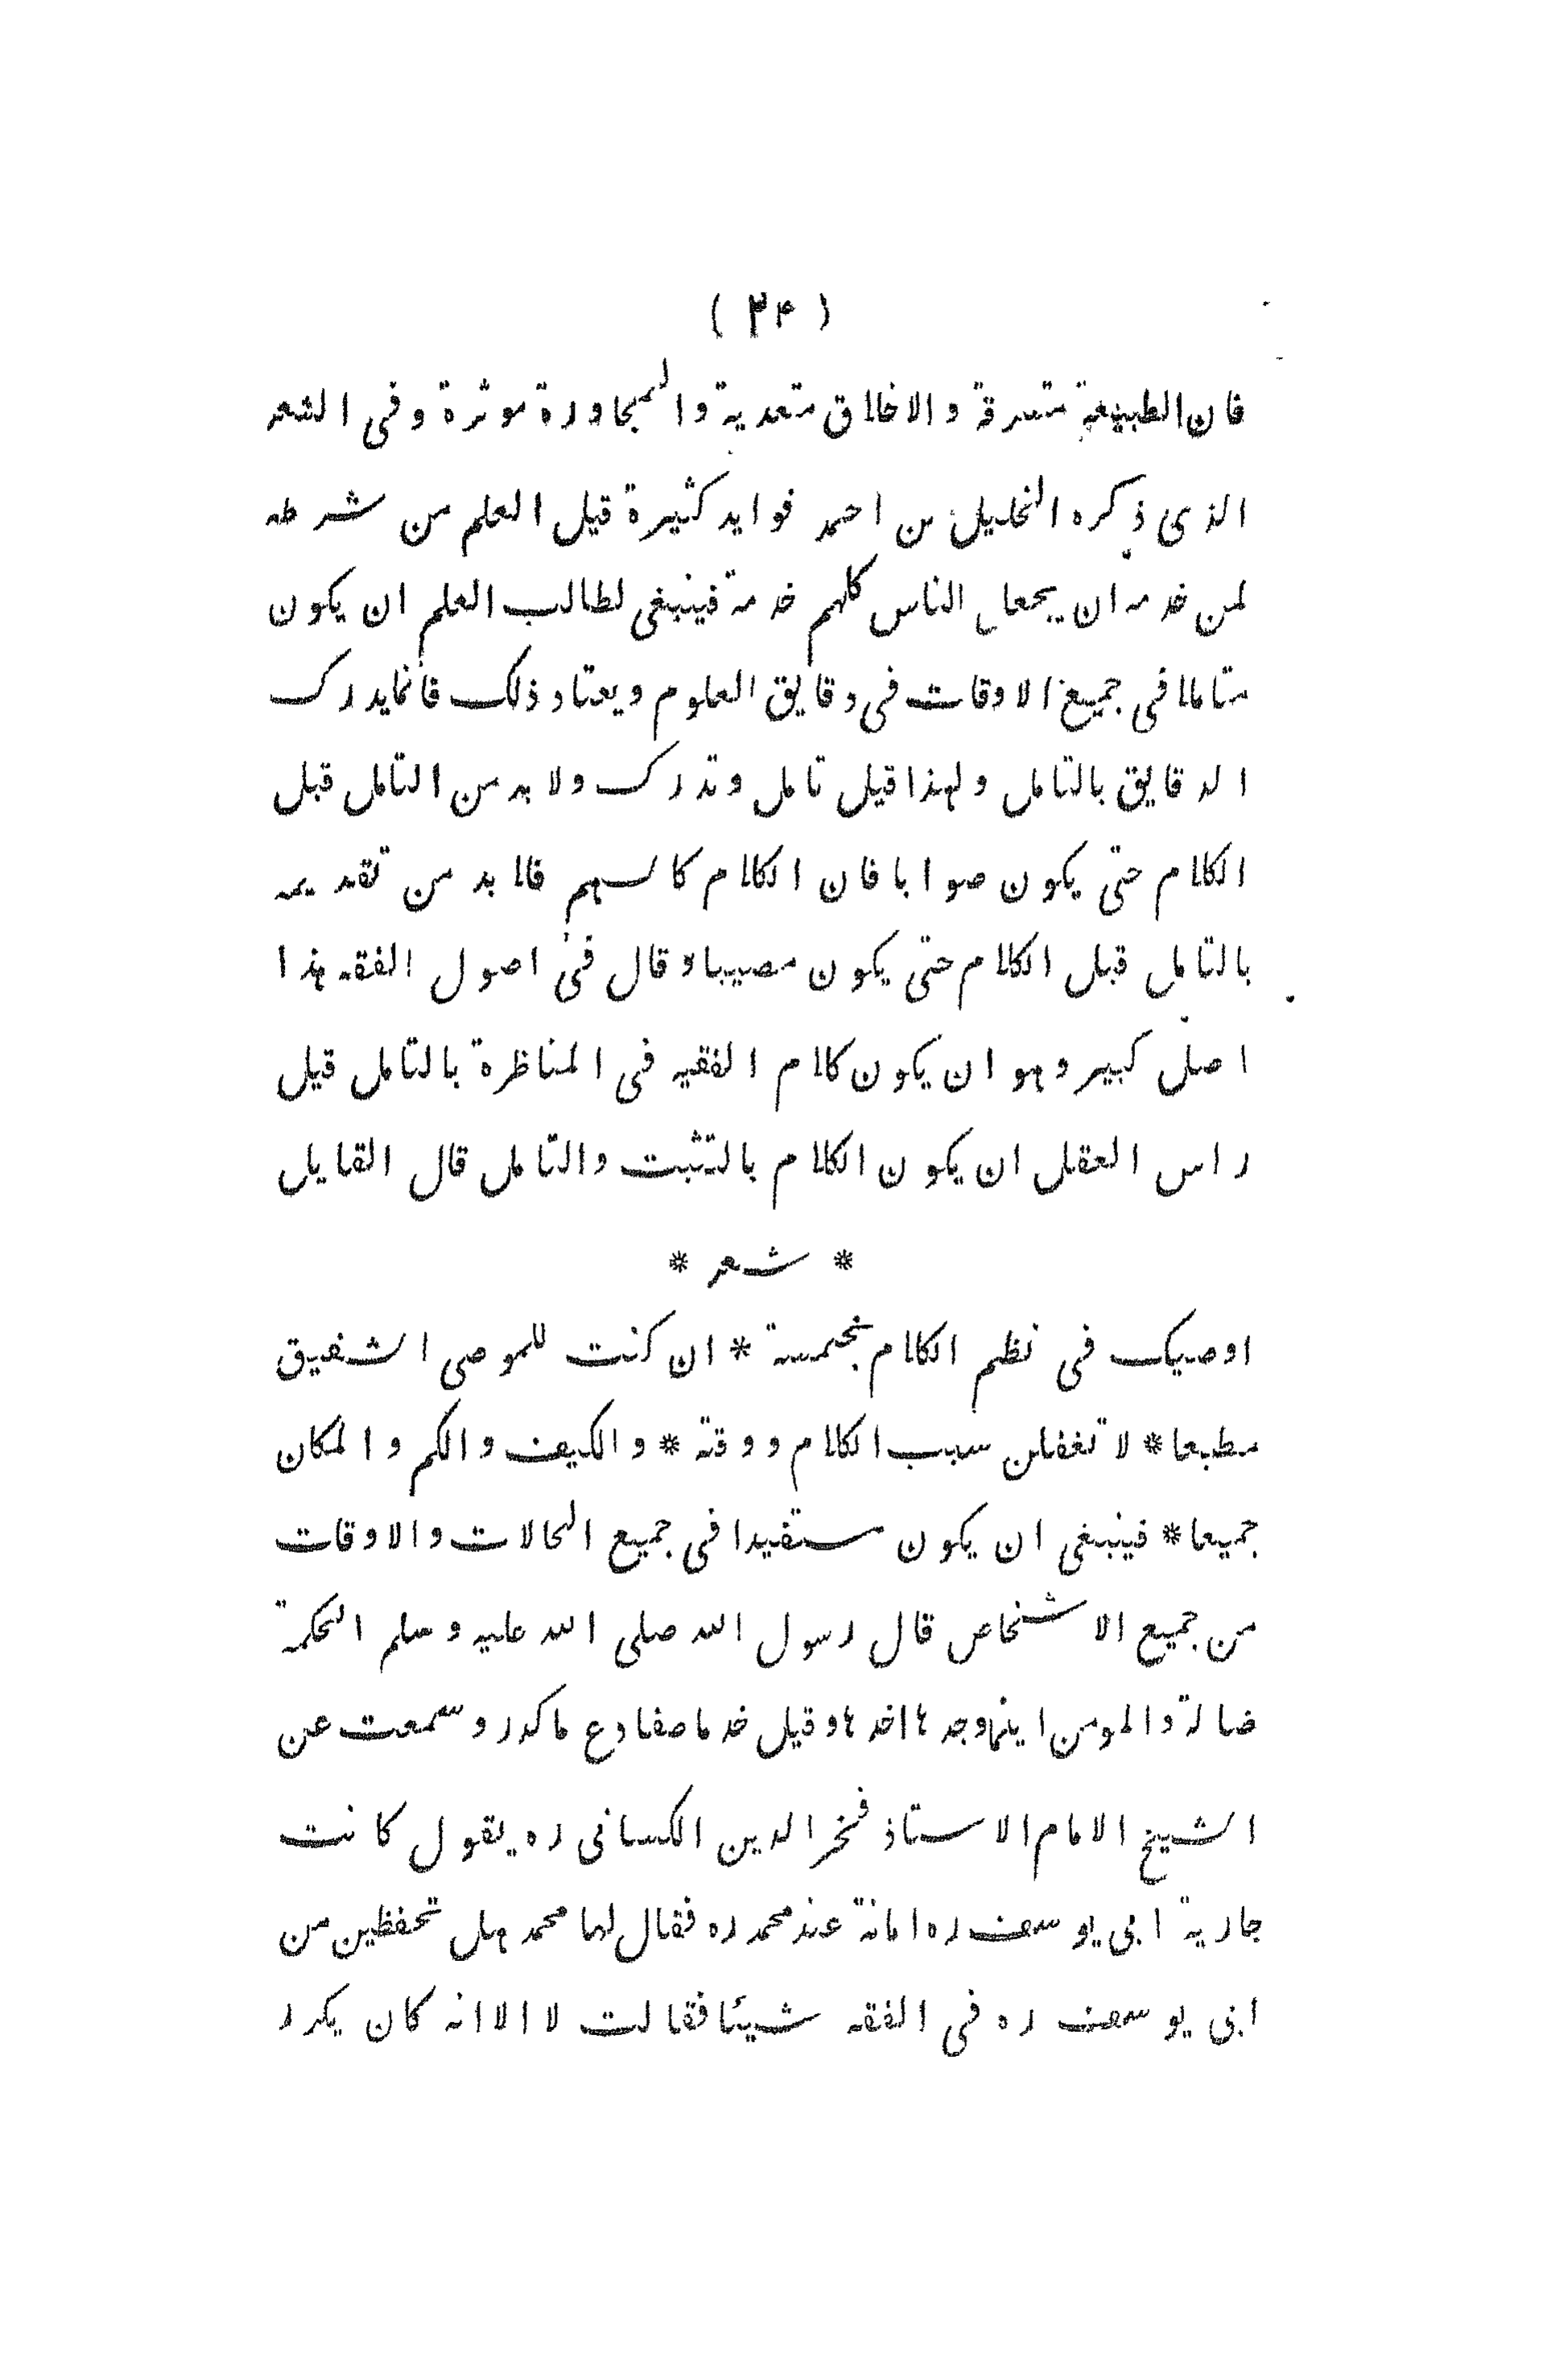 ( ٢۴ )
فان الطبيعة متسرقة والاخلاق متعدية والمجاورة موثرة وفى الشعر
الذى ذكره الخليل بن احمد فوايد كثيرة قيل العلم من شرطه
لمن خدمه ان يجعل الناس كلهم خدمة فينبغى لطالب العلم ان يكون
متاملا فى جميع الاوقات فى دقايق العلوم ويعتاد ذلك فانمايدرك
الدقايق بالتامل ولهذا قيل تامل وتدرك ولا بد من التامل قبل
الكلام حتى يكون صوابا فان الكلام كالسهم فلا بد من تقديمه
بالتامل قبل الكلام حتى يكون مصيبا وقال فى اصول الفقه هذا
اصل كبير وهو ان يكون كلام الفقيه فى المناظرة بالتامل قيل
راس العقل ان يكون الكلام بالتثبت والتامل قال القايل
* شعر *
اوصيك فى نظم الكلام بخمسة * ان كنت للموصى الشفيق
مطيعا * لا تغفلن سبب الكلام ووقته * والكيف والكم والمكان
جميعا * فينبغى ان يكون مستفيدا فى جميع الحالات والاوقات
من جميع الاشخاص قال رسول الله صلى الله عليه وسلم الحكمة
ضالة المومن اينما وجدها اخذها وقيل خذ ما صفا ودع ما كدر وسمعت عن
الشيخ الامام الاستاذ فخر الدين الكسانى ره يقول كانت
جارية ابى يوسف ره امانة عند محمد ره فقال لها محمد هل تحفظين من
ابى يوسف ره فى الفقه شيئا فقالت لا الا انه كان يكرر